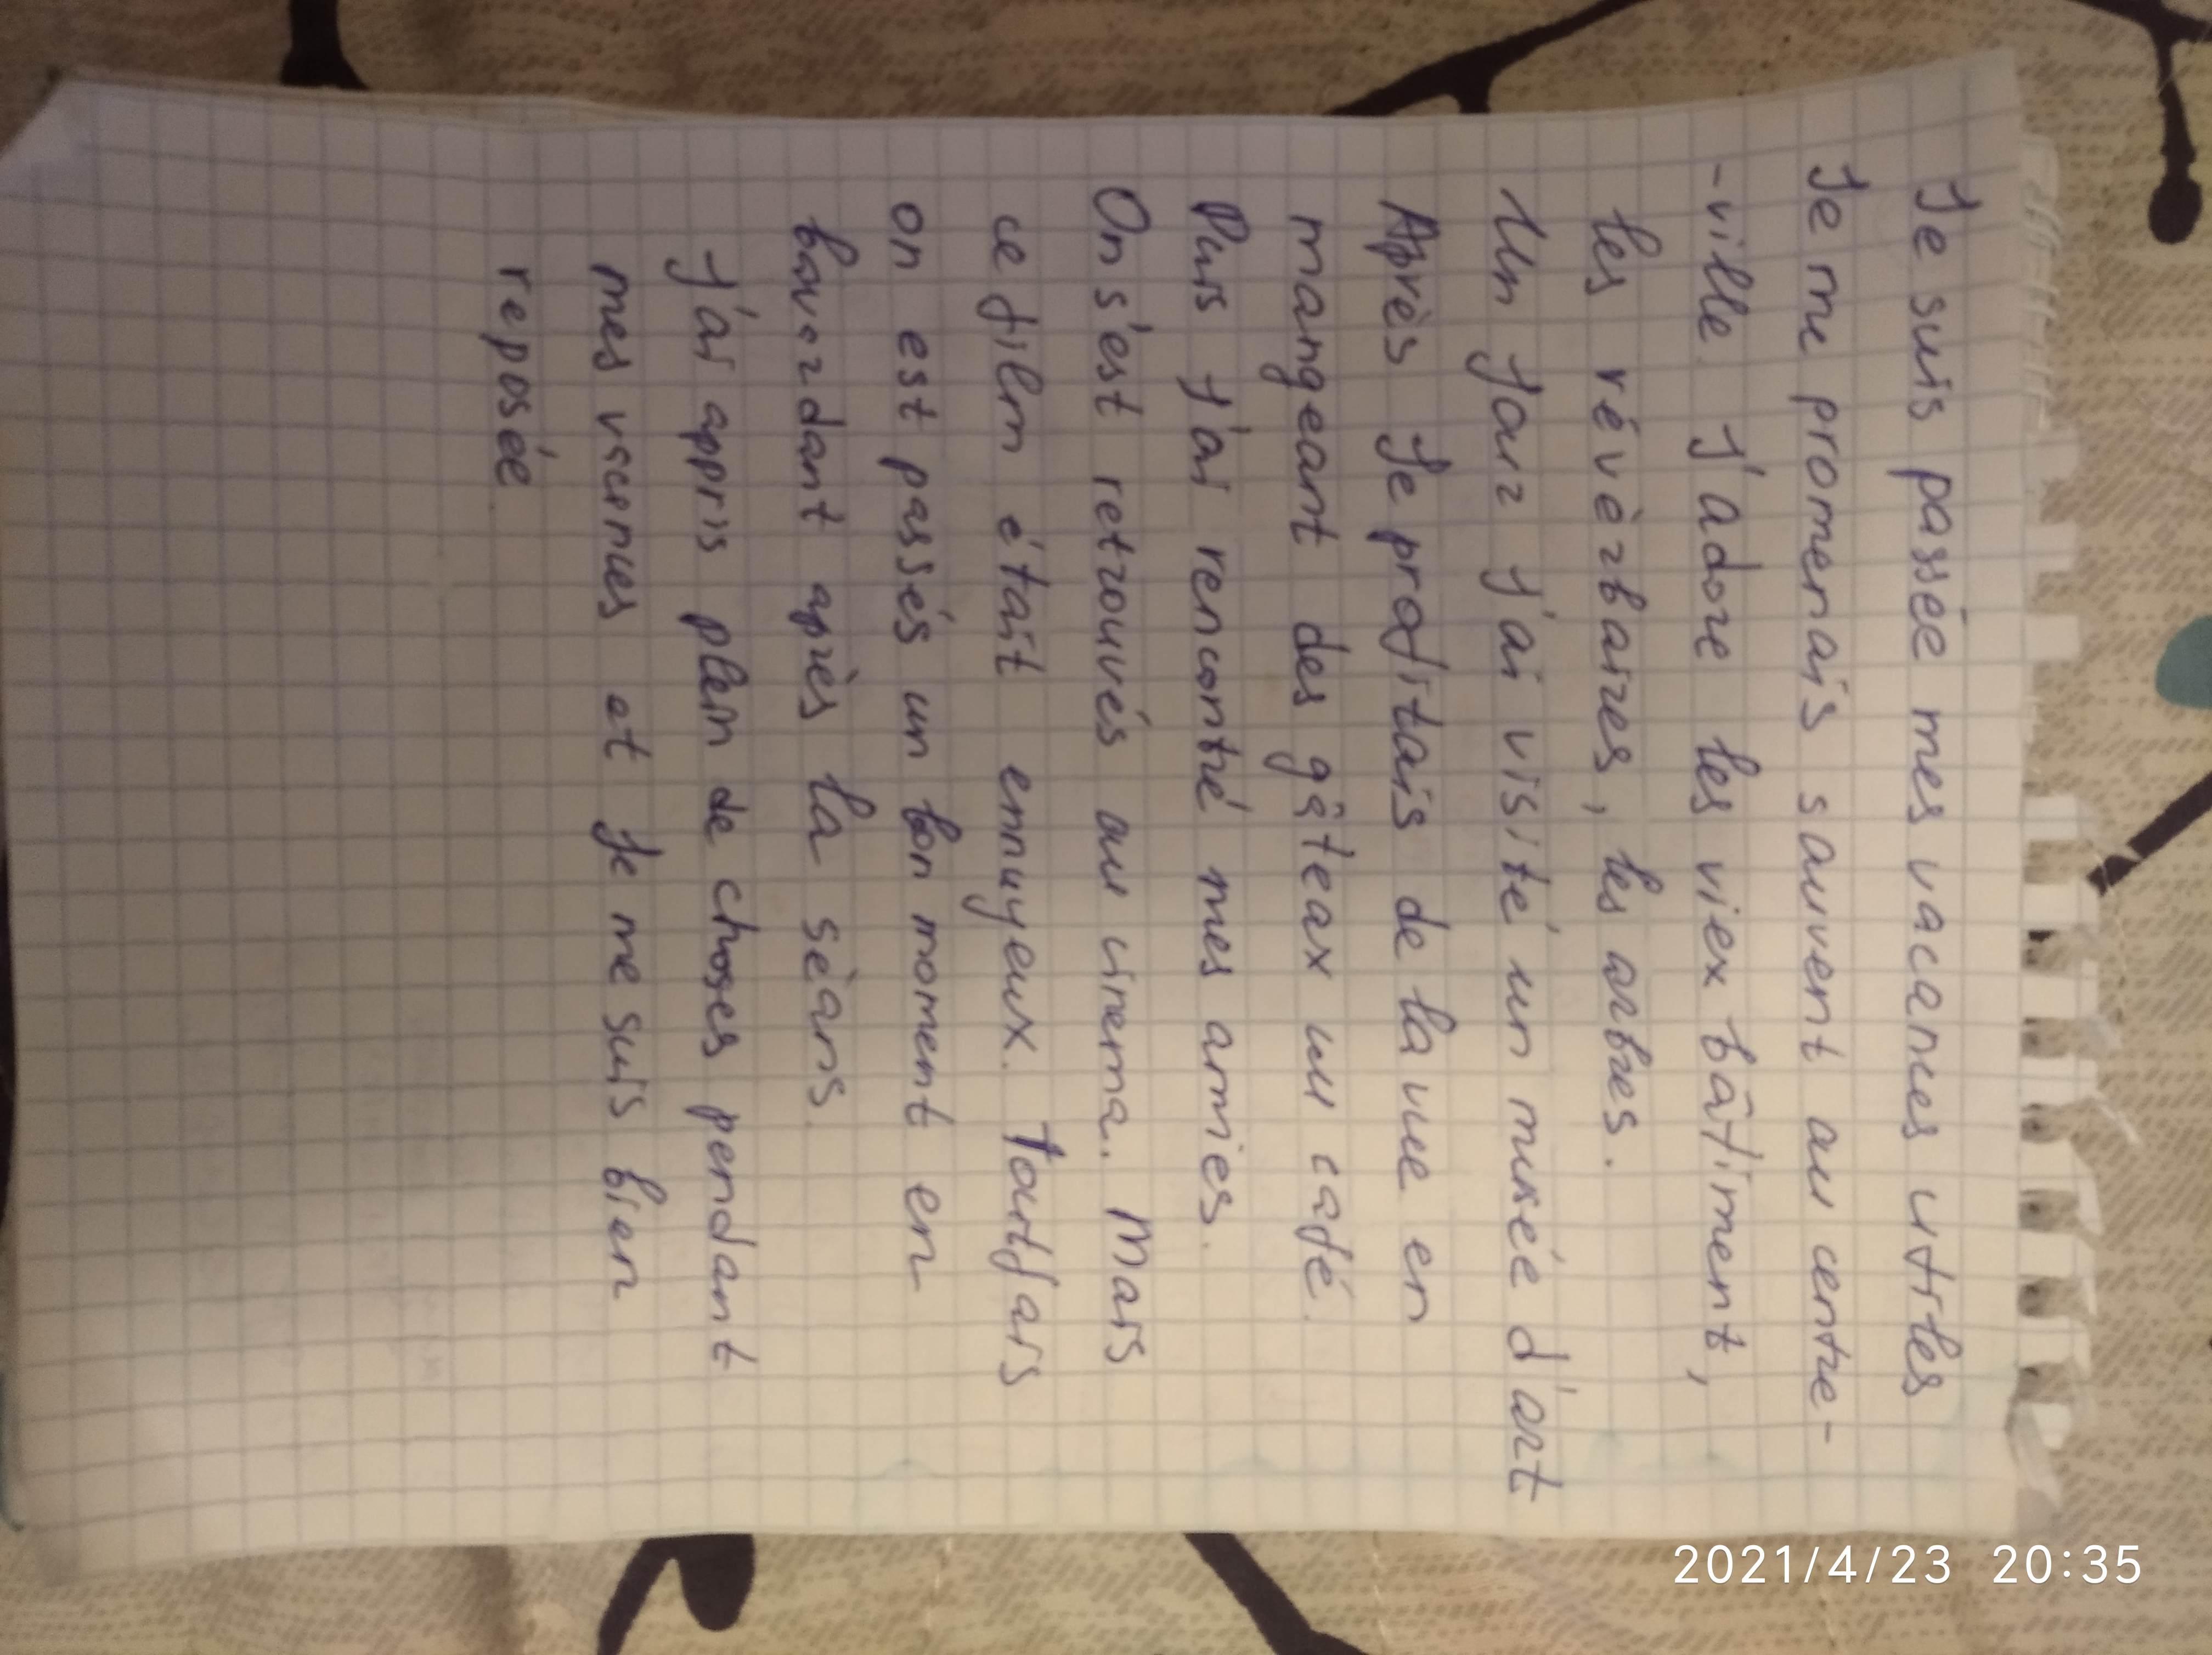 Je suis passée mes vacances utiles
Je me promenais sauvent au centre-
-ville J'adore les viex bâtiment,
les révèrbaires, les arbres.
Un jour j'ai visité un musée d'art
Après Je profitais de la vue en
mangeant des gâteax au café.
Puis j'ai rencontré mes amies.
On s'est retrouvés au cinema. Mais
ce film était ennuyeux. Toutfais
on est passés un bon moment en
bavardant après la sèans.
J'ai appris plein de choses pendant
mes vacances et Je me suis bien
reposée
2021/4/23 20:35